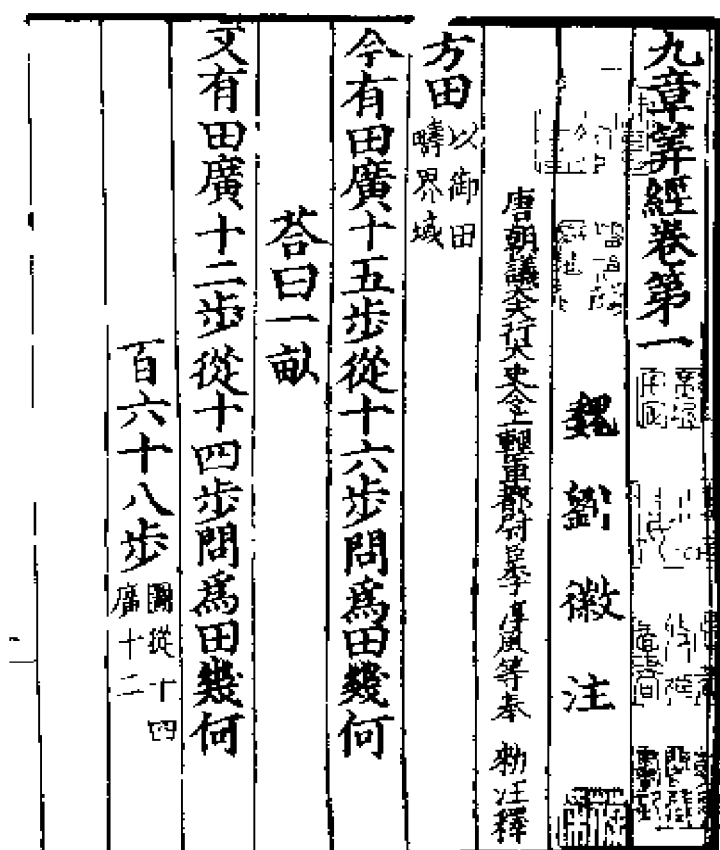 九章筭經卷第一
魏劉徽注
唐朝議大夫行太史令上輕車都尉臣李淳風等奉 勅注釋
方田以御田
疇界域
今有田廣十五步從十六步問爲田幾何
荅曰一畝
又有田廣十二步從十四步問爲田幾何
百六十八步圖從十四
廣十二